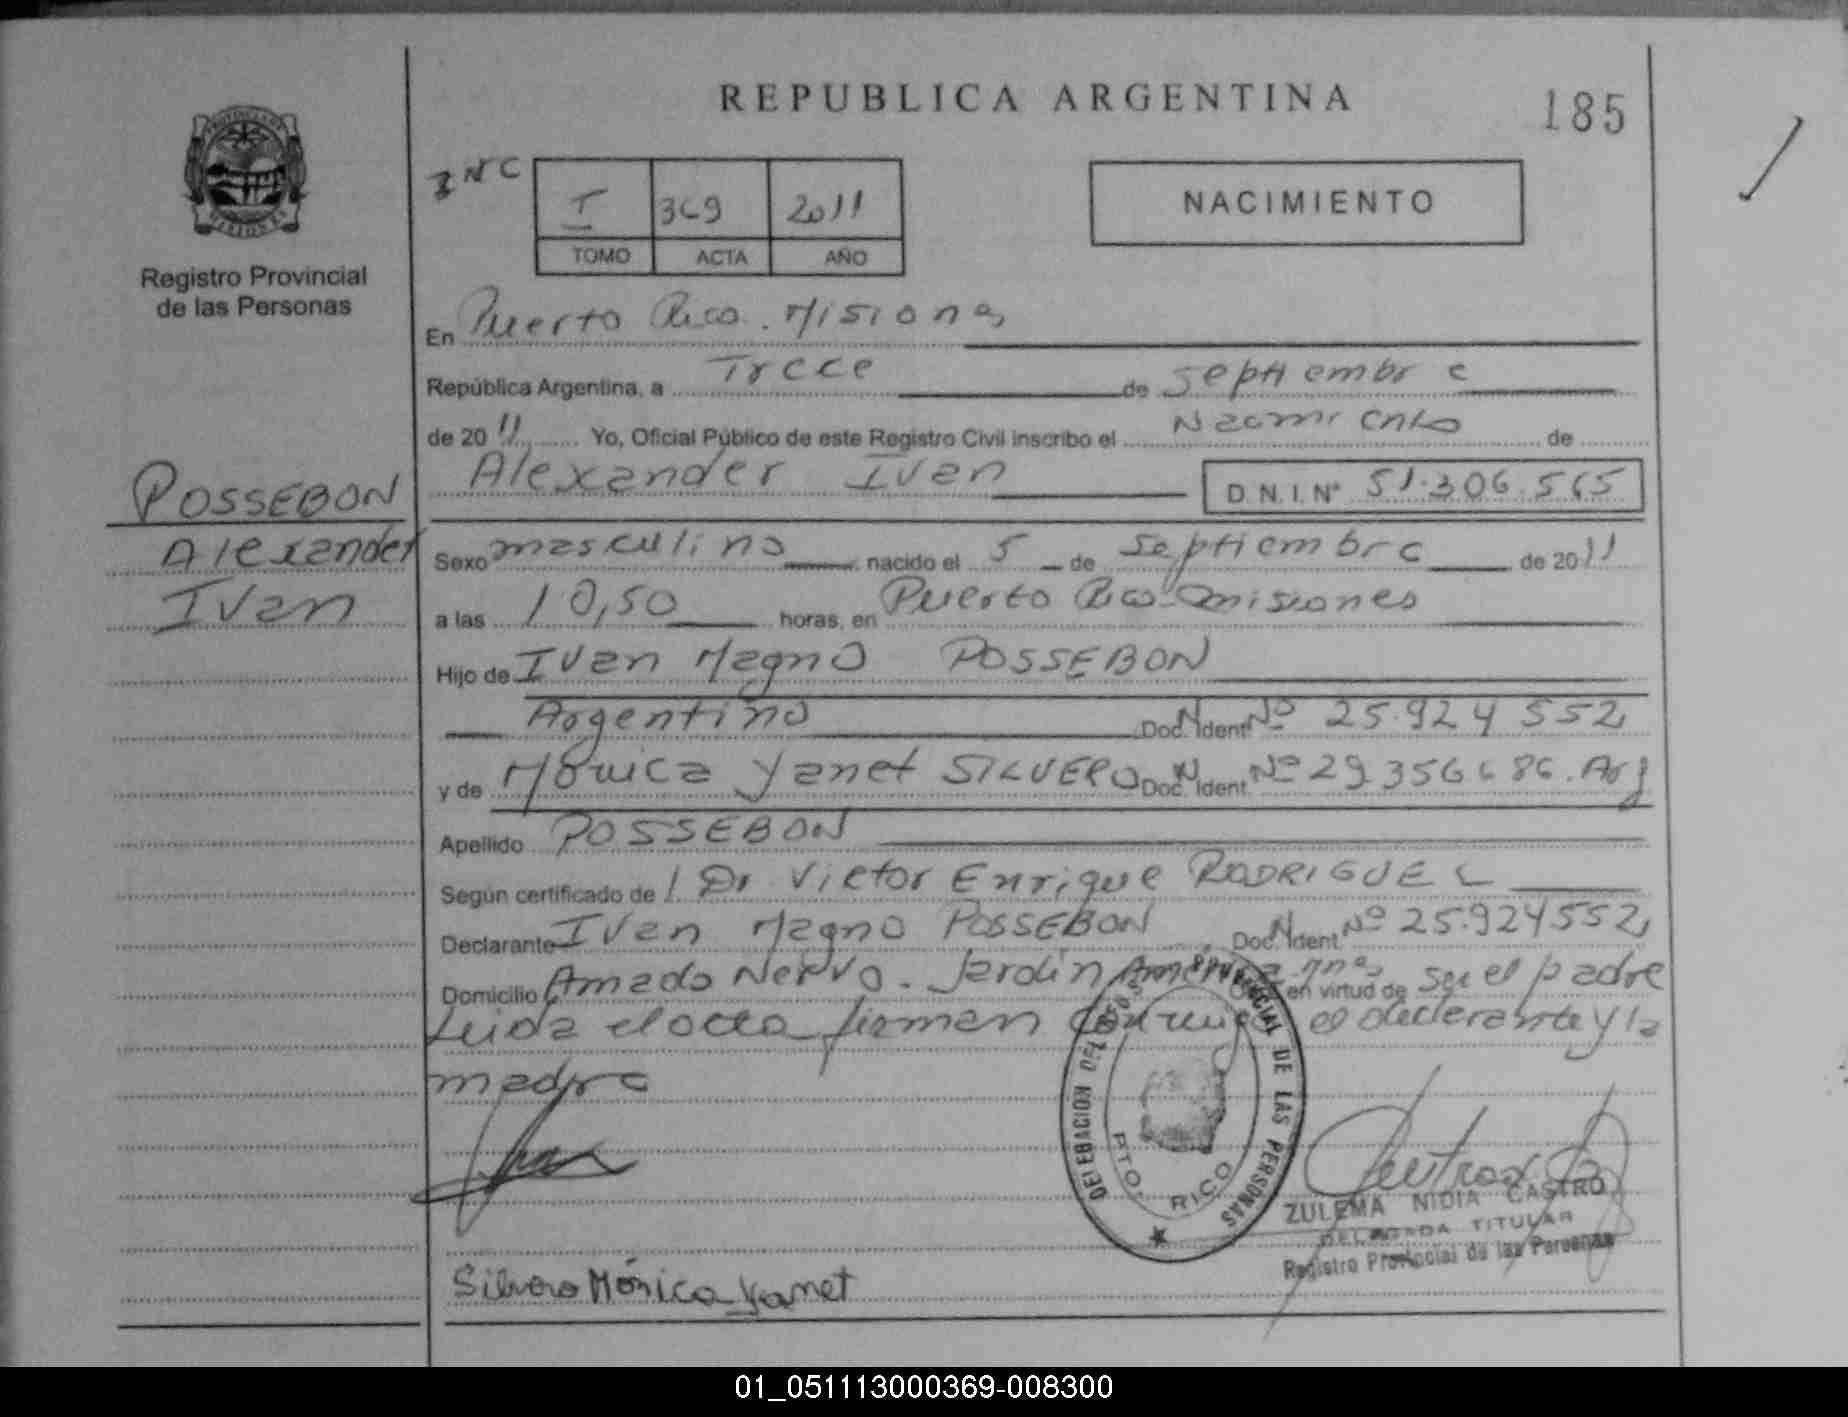 REPUBLICA ARGENTINA
185
PROVINCIA DE MISIONES
Registro Provincial
de las Personas
I 369 2011
TOMO ACTA AÑO
NACIMIENTO
En Puerto Rico. Misiones
República Argentina, a Trece de Septiembre
de 2011 Yo, Oficial Público de este Registro Civil inscribo el Nacimiento de
Alexander Ivan D.N.I. Nº 51.306.565
POSSEBON
Alexander
Ivan
Sexo masculino nacido el 5 de Septiembre de 2011
a las 10,50 horas, en Puerto Rico-misiones
Hijo de Ivan Magno POSSEBON
Argentino Doc. N. Ident. Nº 25.924 552
y de Mónica Yanet SILVERO Doc. N. Ident. Nº 29 356 686. Arg
Apellido POSSEBON
Según certificado de Dr Victor Enrique RODRIGUEZ
Declarante Ivan Magno POSSEBON Doc. N. Ident. Nº 25.924552
Domicilio Amado Nervo. Jardín América en virtud de ser el padre
Leida el acta firman conmigo el declarante y la
madre
DELEGACION DEL REGISTRO PROVINCIAL DE LAS PERSONAS
PTO. RICO
ZULEMA NIDIA CASTRO
DELEGADA TITULAR
Registro Provincial de las Personas
Silvero Mónica Yanet
01_051113000369-008300